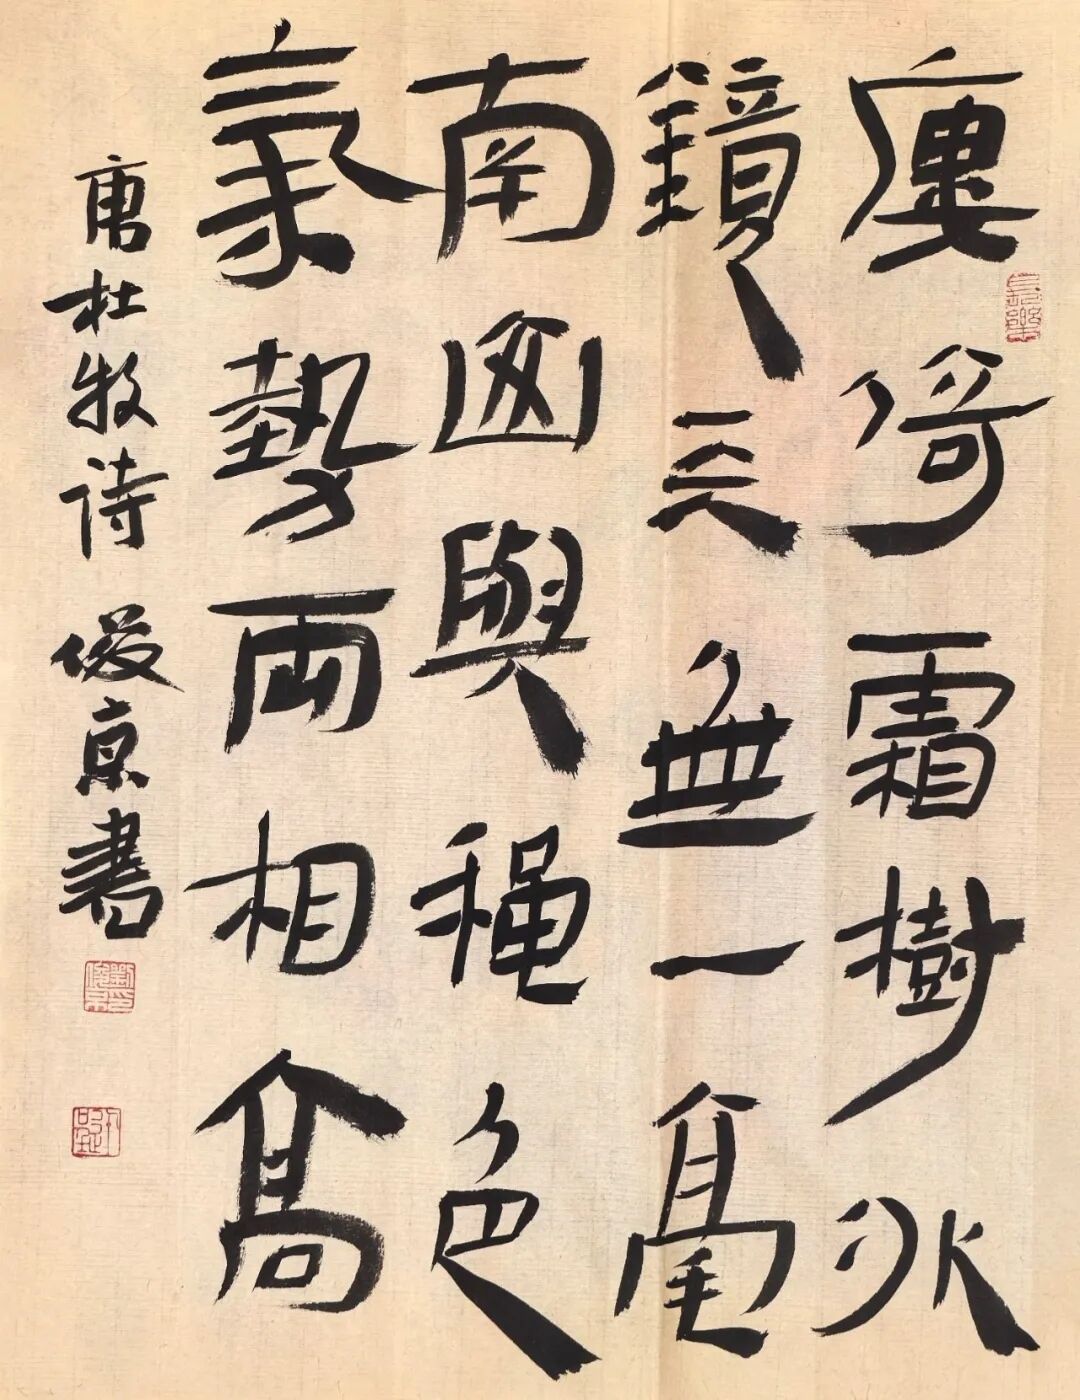 廔倚霜樹外
鏡天無一毫
南山與穐色
氣勢兩相高
唐杜牧诗 俊京書